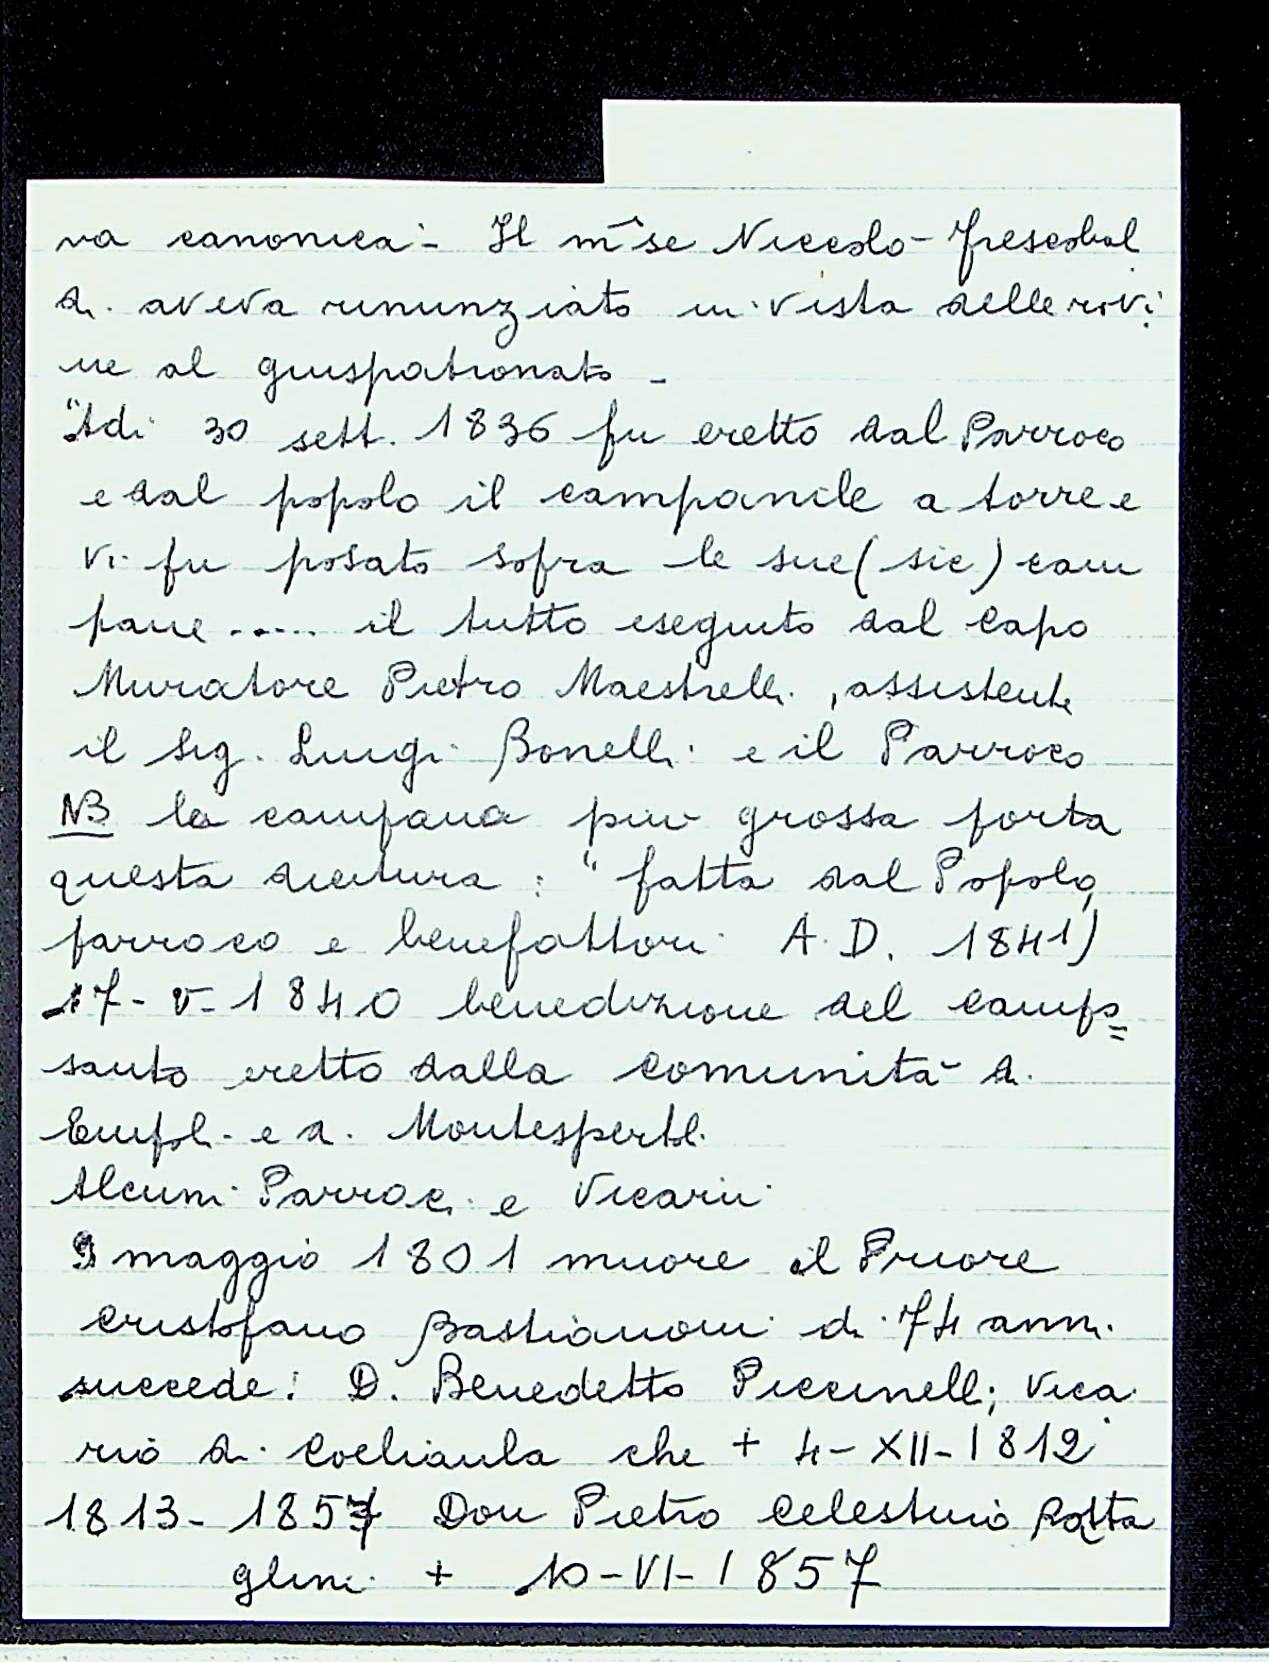 va canonica - Il m̂se Niccolò Frescobal
di aveva rinunziato in vista delle rovi
ne al giuspatronato -
"Adi 30 sett. 1836 fu eretto dal Parroco
e dal popolo il campanile a torre e
vi fu posato sopra le sue (sic) cam
pane ..... il tutto eseguito dal Capo
Muratore Pietro Maestrelli, assistente
il Sig. Luigi Bonelli e il Parroco
NB la campana più grossa porta
questa dicitura: "fatta dal Popolo,
parroco e benefattori A.D. 1841)
17-V-1840 benedizione del campo=
santo eretto dalla Comunità di
Empoli e di Montespertoli
Alcuni Parroci e Vicarii
9 maggio 1801 muore il Priore
Cristofano Bastianoni di 74 anni.
succede: D. Benedetto Piccinelli, Vica
rio di Coeliaula che + 4-XII-1812
1813-1857 Don Pietro Celestino Patta
glini + 10-VI-1857